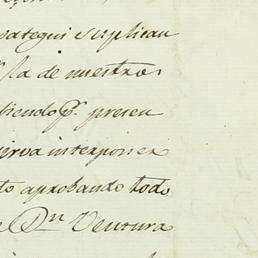 sategui suplican
la de nuestra
diendo p.r presen
sirva interponer
to aprobando todo
e Dn Ventura